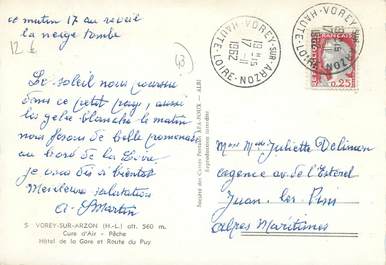 ce matin 17 au reveil
la neige tombe
12 €
Le soleil nous
dans ce petit pays, aussi
les gelée blanche le matin
nous faisons de belle promenade
au bord de la
je vous dis a bientot
Meilleure salutation
a. Martin
5 VOREY-SUR-ARZON (H.-L.) alt. 560 m.
Cure d'Air - Pêche
Hôtel de la Gare et Route du Puy
Société des Cartes Postales APA-POUX - ALBI
Reproduction interdite
VOREY-SUR-ARZON
HAUTE-LOIRE
17 -11
1962
VOREY-SUR-ARZON
HAUTE-LOIRE
0,25
Juliette Delimon
agence av. de l'Esterel
Juan. les Pins
alpes Maritimes